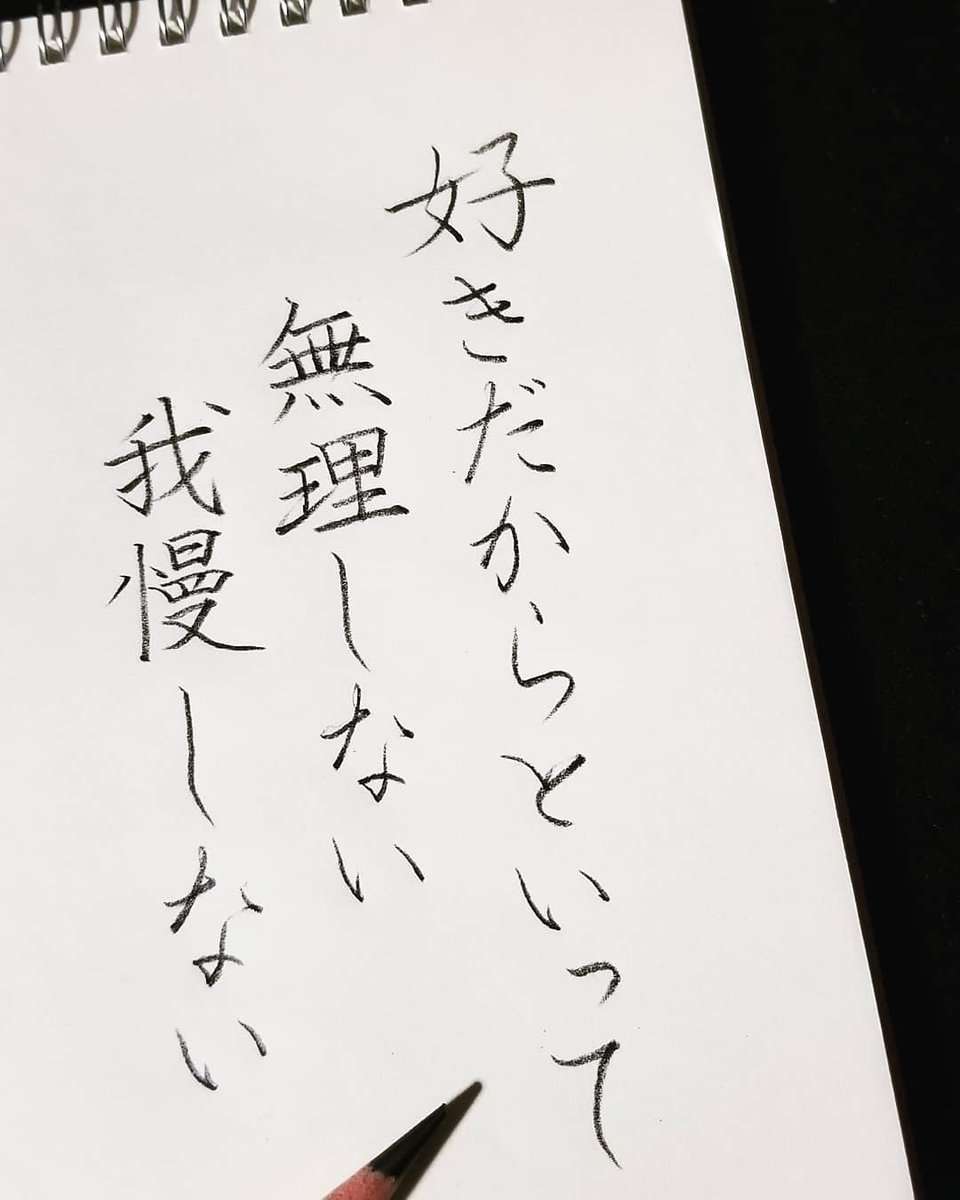 好きだからといって
無理しない
我慢しない